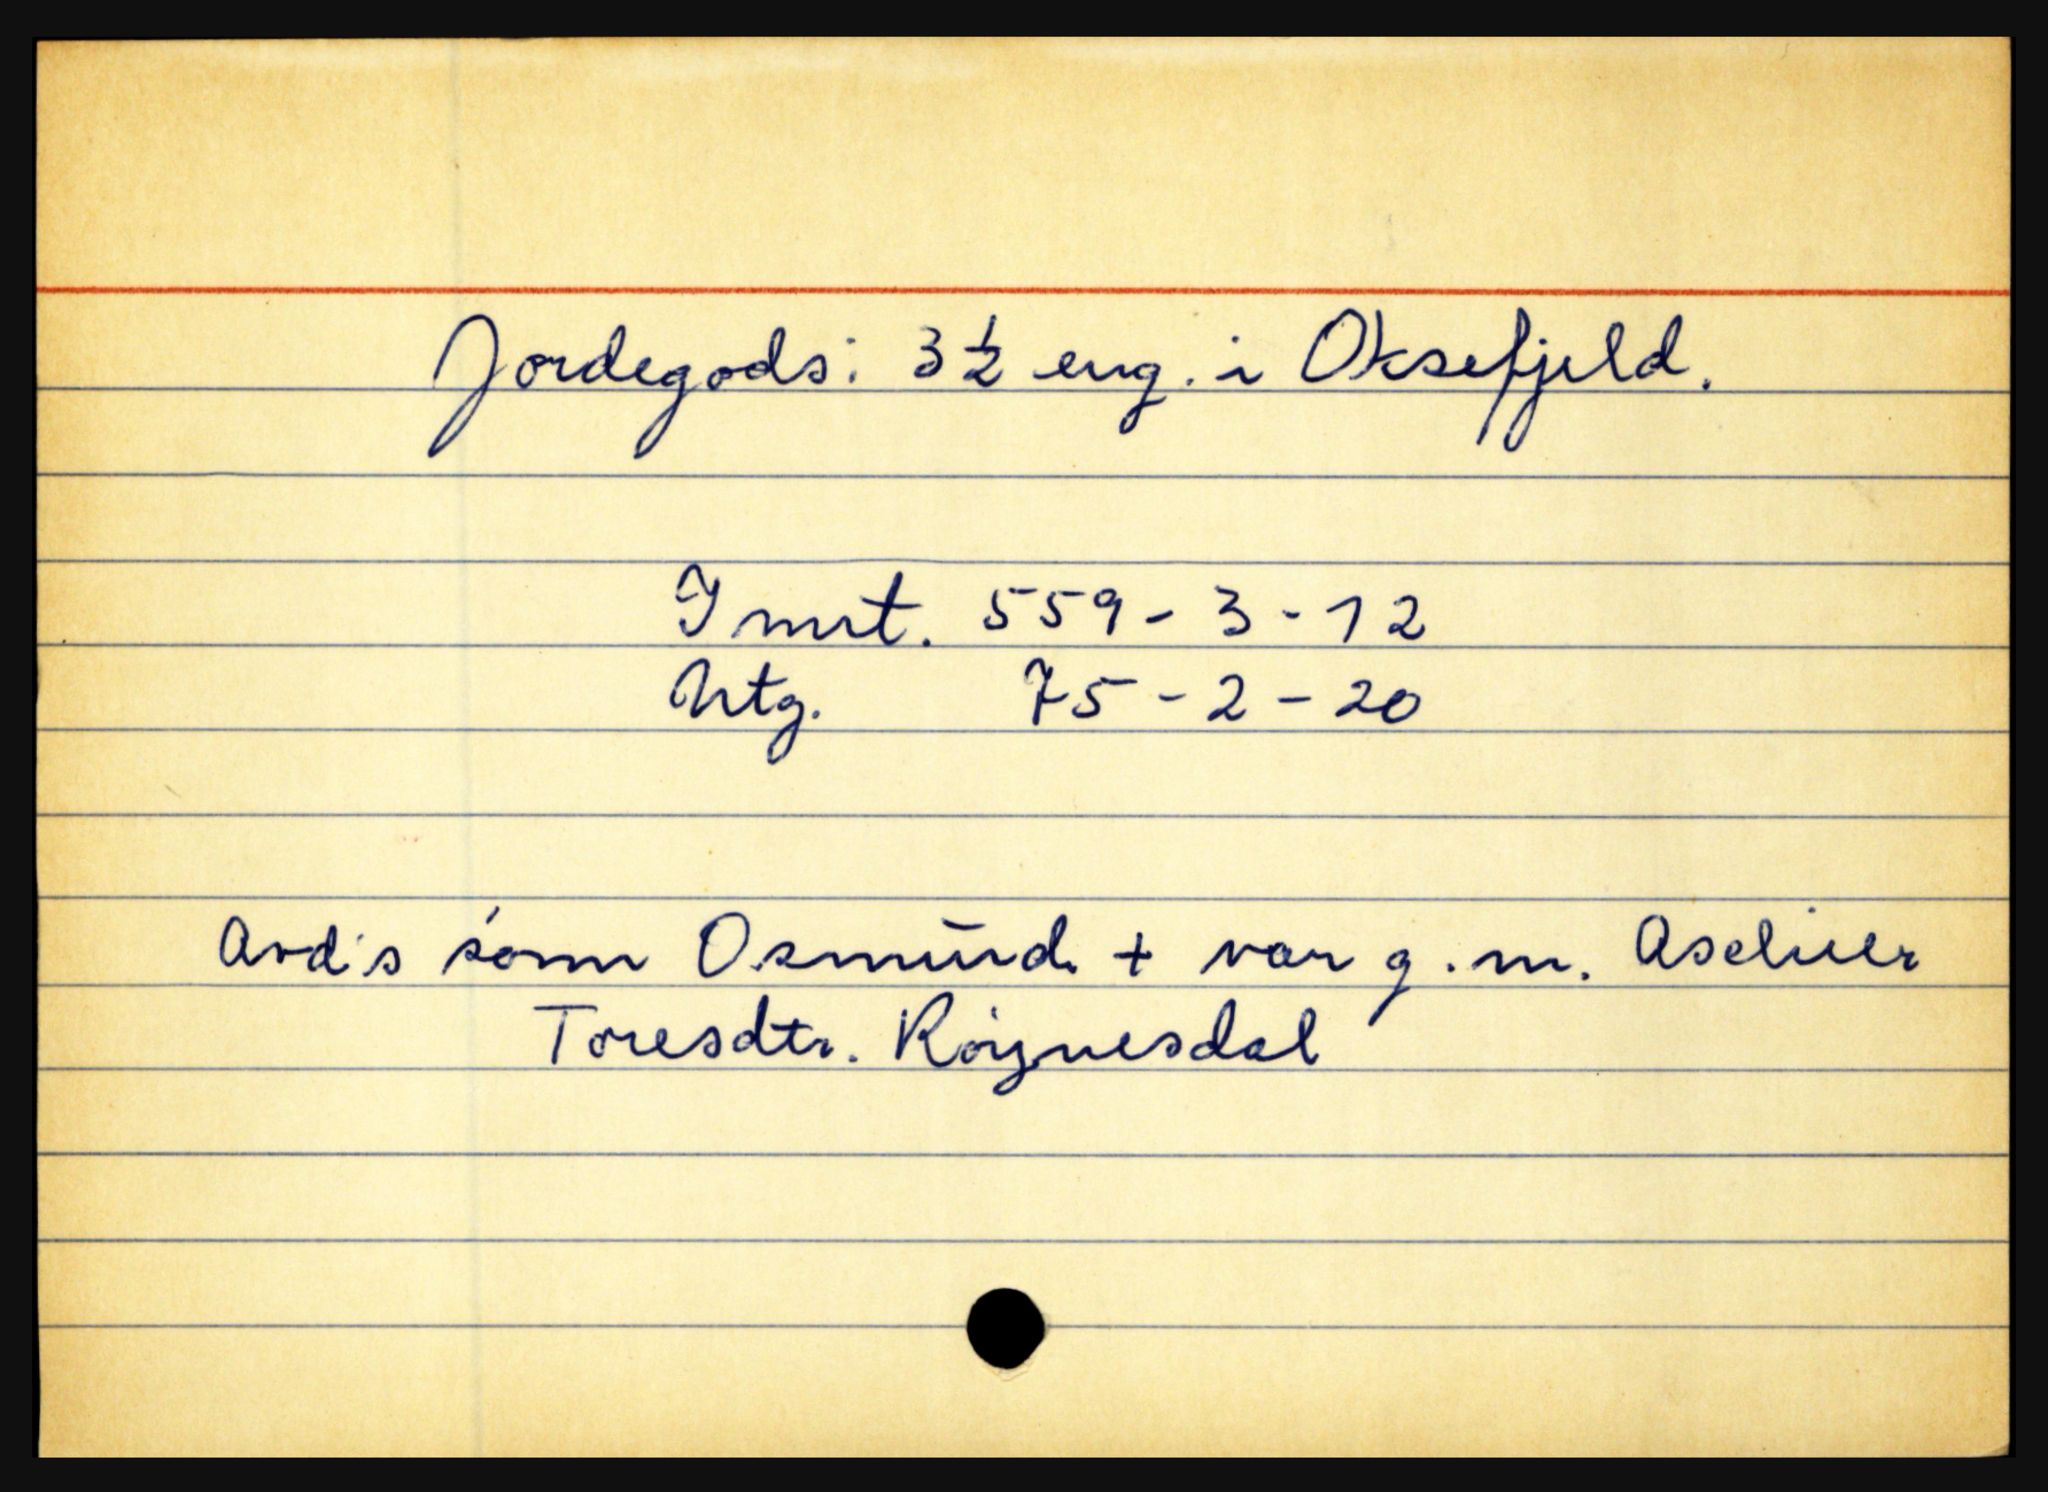 Jordegods: 3½ eng. i Oksefjeld.
Innt. 559 - 3 - 12
Utg. 75 - 2 - 20
Avd's sønn Osmund + var g.m. Aselier
Toresdtr. Røynesdal